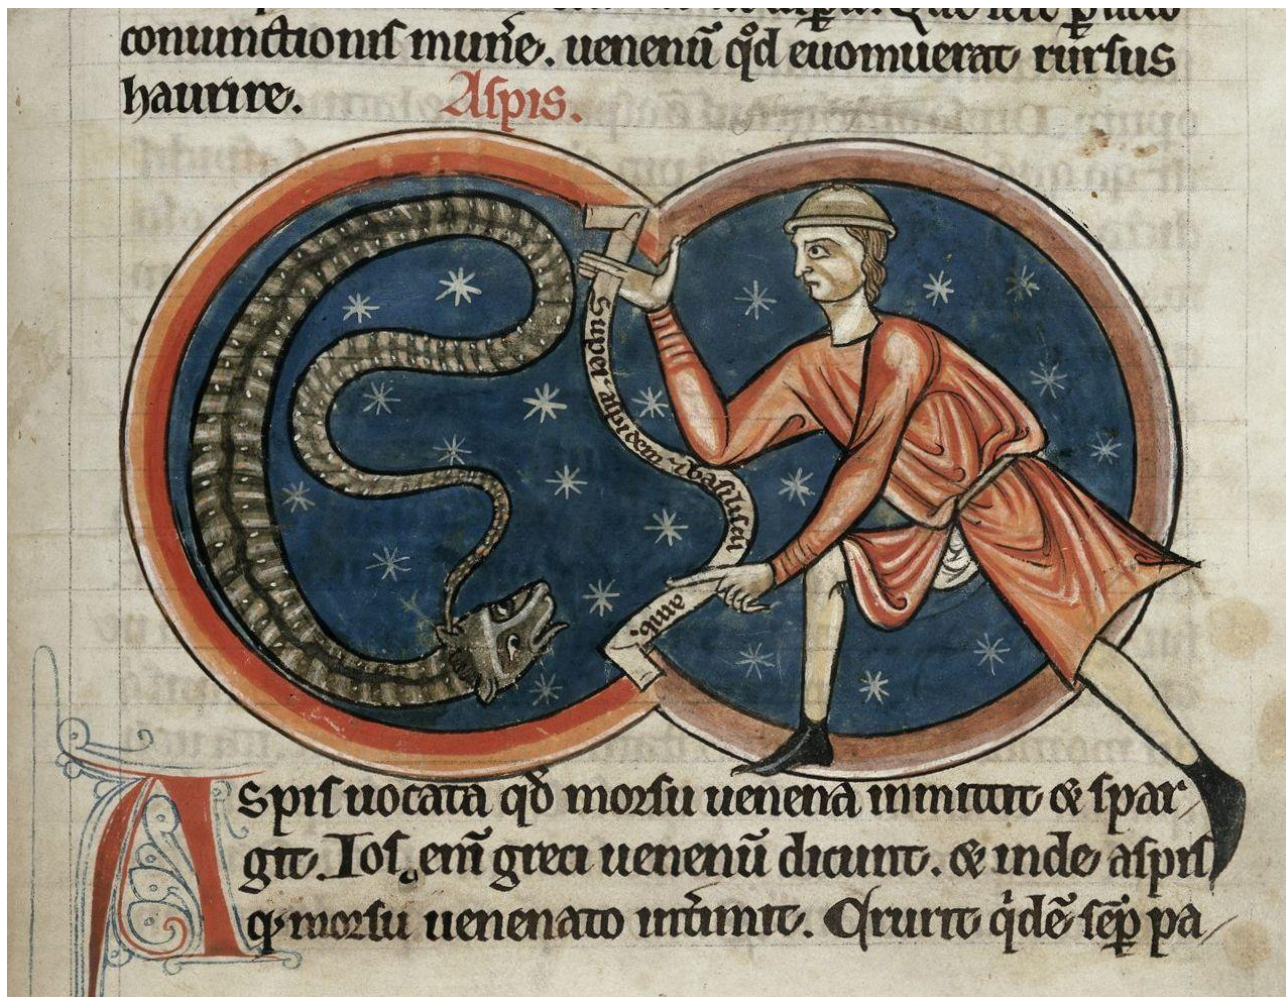 coniunctionis mur̄e. uenenū qd̄ euomuerat rursus
haurire. Aspis.
Super aspidem ⁊ basiliscū
amb̾.
Aspis uocata qd̄ morsu uenena inmittit & spar
git. Ios eni̅ greci uenenū dicunt. & inde aspis
q morsu uenenato int̾imit. Crurit q̇dē sēp pa